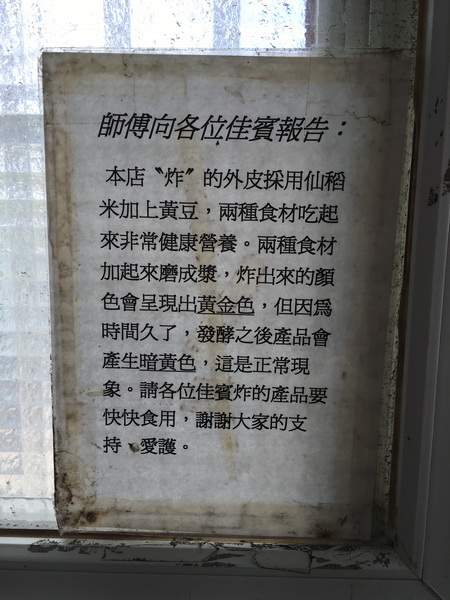 師傅向各位佳賓報告：
本店〝炸〞的外皮採用仙稻
米加上黃豆，兩種食材吃起
來非常健康營養。兩種食材
加起來磨成漿，炸出來的顏
色會呈現出黃金色，但因為
時間久了，發酵之後產品會
產生暗黃色，這是正常現
象。請各位佳賓炸的產品要
快快食用，謝謝大家的支
持、愛護。